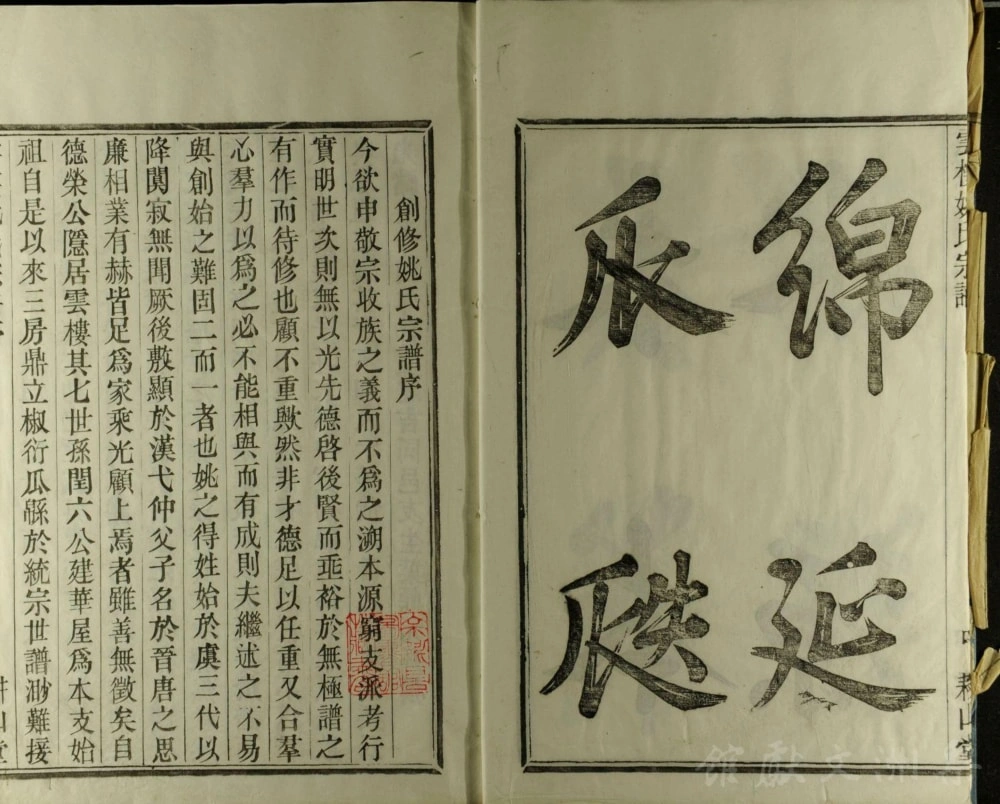 綿延
瓜瓞
姚氏宗譜
耕山堂
創修姚氏宗譜序
今欲申敬宗收族之義而不爲之溯本源窮支派考行
實明世次則無以光先德啓後賢而垂裕於無極譜之
有作而待修也顧不重歟然非才德足以任重又合羣
心羣力以爲之必不能相與而有成則夫繼述之不易
與創始之難固二而一者也姚之得姓始於虞三代以
降闃寂無聞厥後敷顯於漢弋仲父子名於晉唐之思
廉相業有赫皆足爲家乘光顧上焉者雖善無徵矣自
德榮公隱居雲樓其七世孫閏六公建華屋爲本支始
祖自是以來三房鼎立椒衍瓜緜於統宗世譜渺難援
文獻館